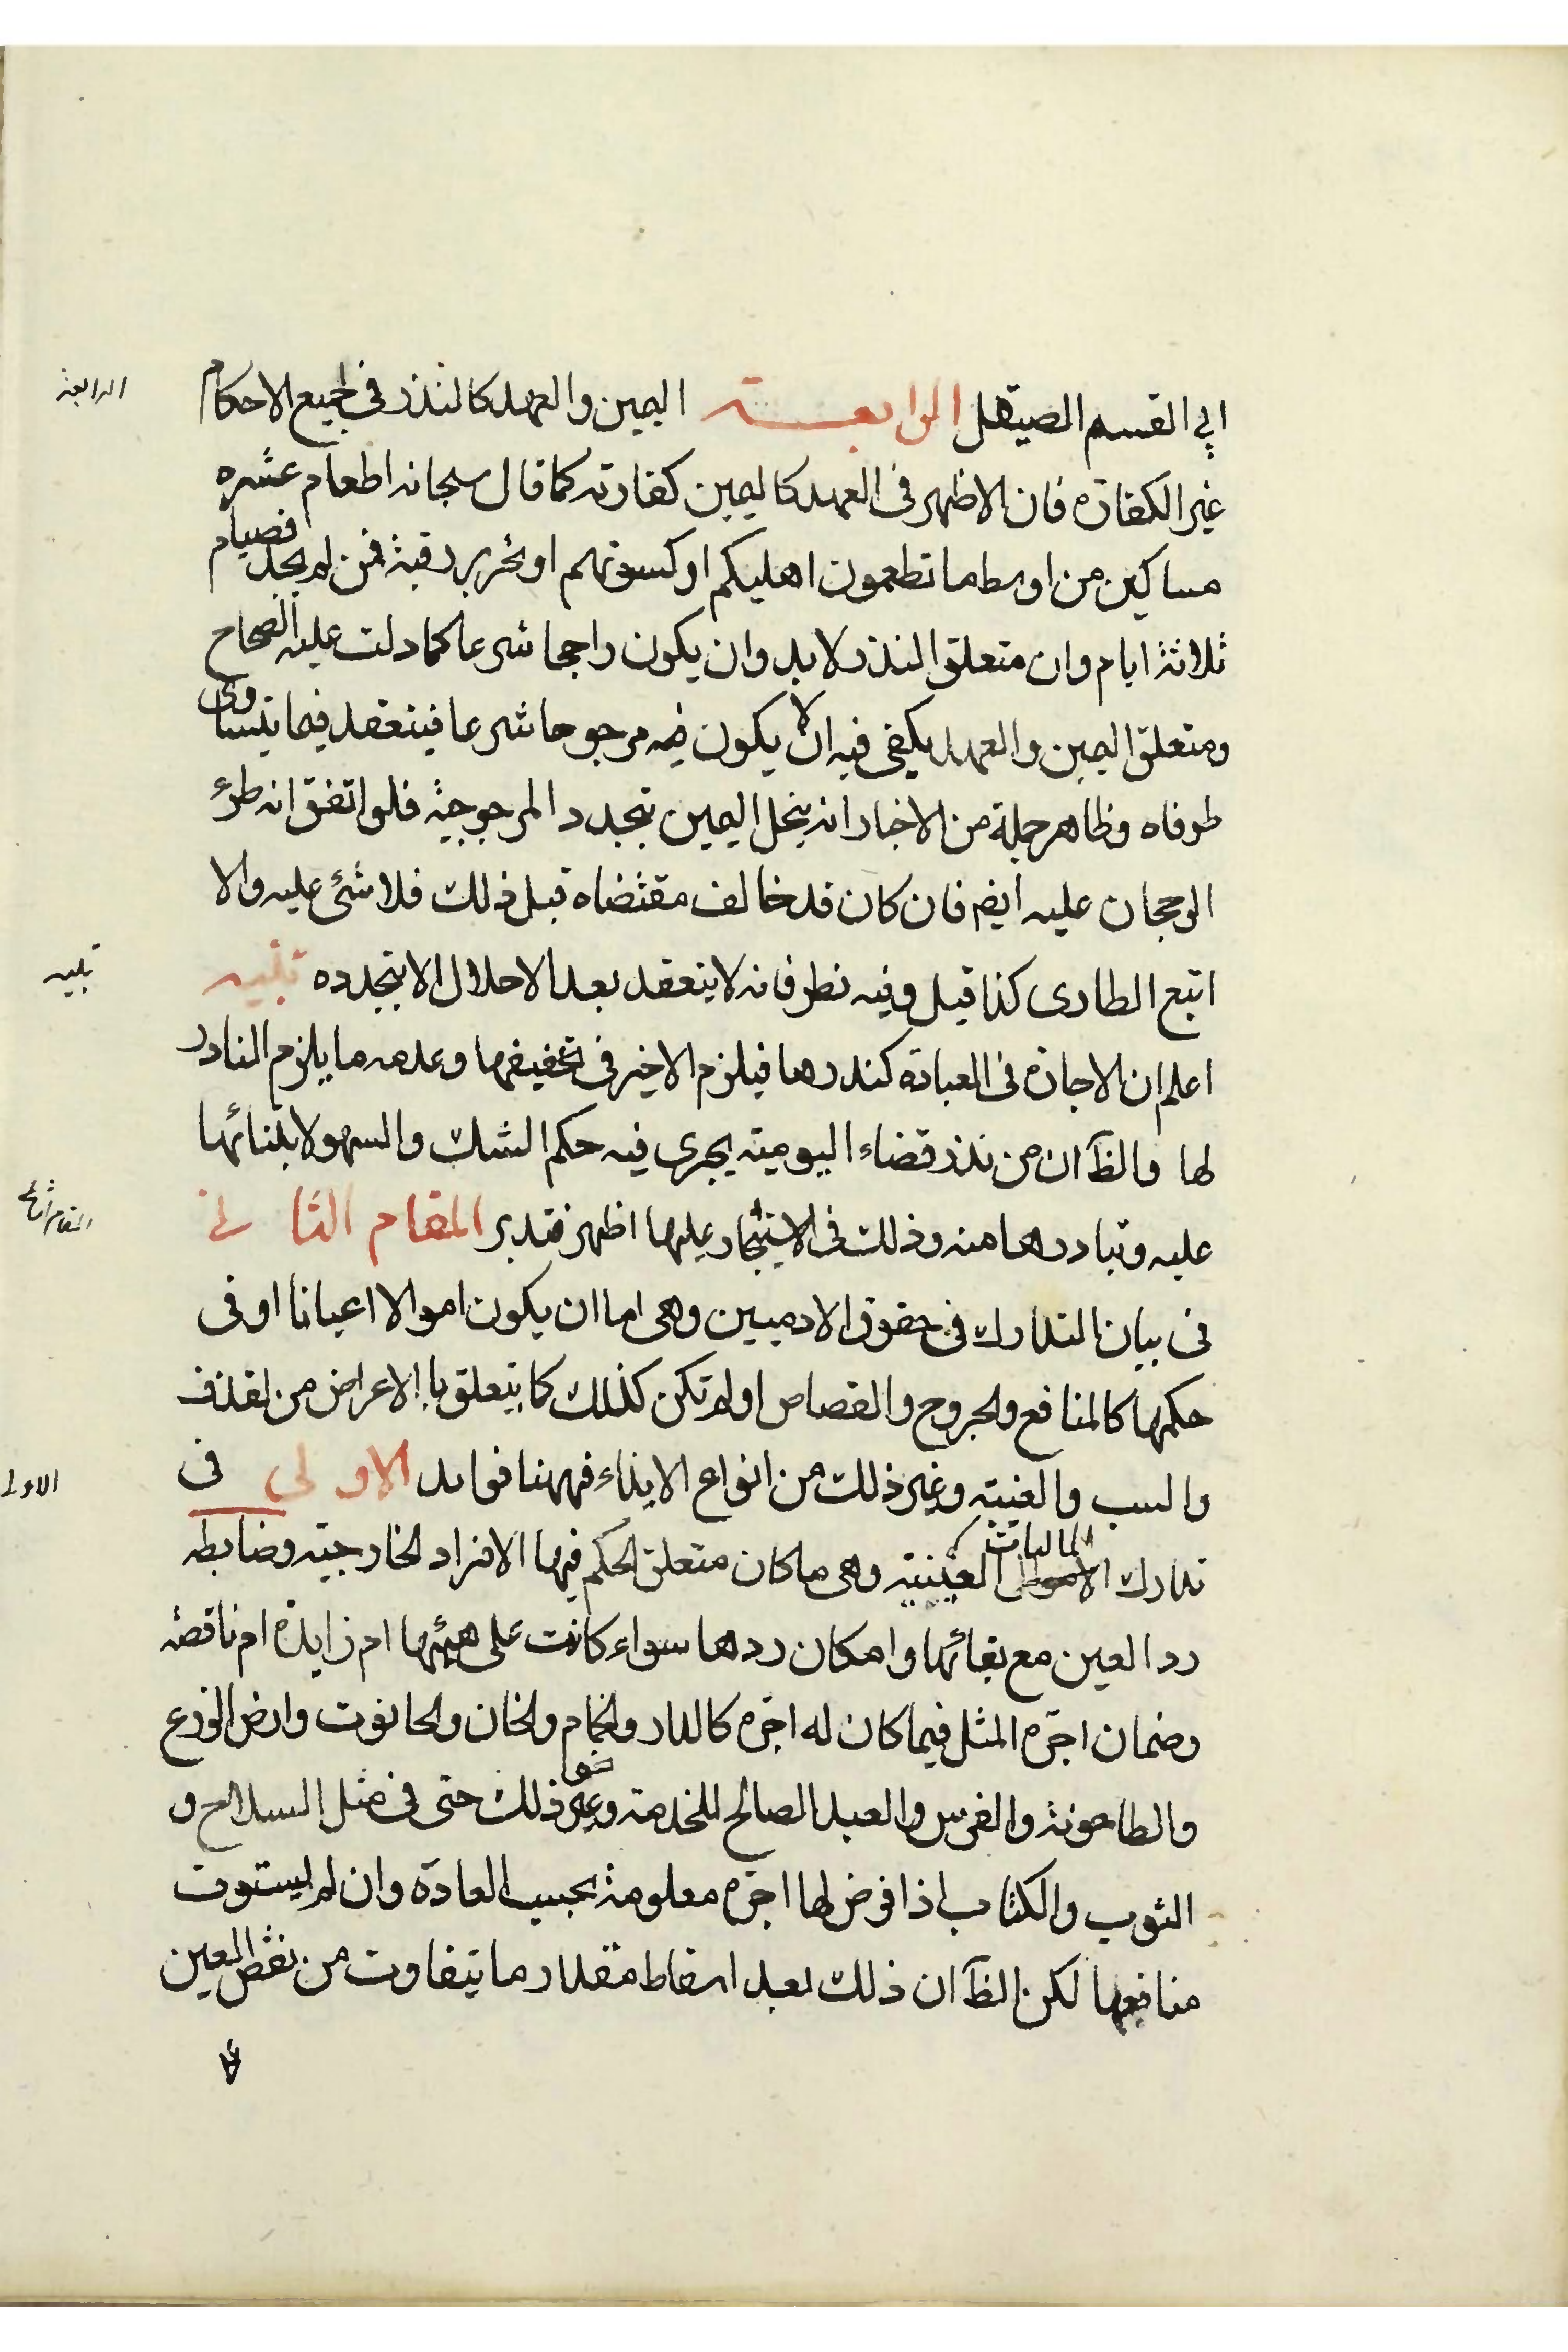 ابي القسم الصيقل الرابعة اليمين والعهد كالنذر في جميع الاحكام
غير الكفارة فان الاظهر في العهد كاليمين كفارته كما قال سبحانه اطعام عشره
مساكين من اوسط ما تطعمون اهليكم او كسوتهم او تحرير رقبة فمن لم يجد فصيام
ثلاثة ايام وان متعلق النذر لا بد وان يكون راجحا شرعا كما دلت عليه الصحاح
ومتعلق اليمين والعهد يكفي فيه ان لا يكون فيه مرجوحا شرعا فينعقد فيما يتساوى
طرفاه وظاهر جملة من الاخبار انه ينحل اليمين بتجدد المرجوحية فلو اتفق انه طرء
الرجحان عليه ايضم فان كان قد خالف مقتضاه قبل ذلك فلا شئ عليه والا
اتبع الطارى كذا قيل وفيه نظر فانه لا ينعقد بعد الاحلال الا بتجدده تنبيه
اعلم ان الاجارة في العبادة كنذرها فيلزم الاخير في تخفيفها وعدمه ما يلزم الناذر
لها والظَ ان من نذر قضاء اليومية يجرى فيه حكم الشك والسهو لابتنائها
عليه وتبادرها منه وذلك في الاستيجار عليها اظهر فتدبر المقام الثاني
في بيان التدارك في حقوق الادميين وهي اما ان يكون اموالا اعيانا او في
حكمها كالمنافع والجروح والقصاص او لم تكن كذلك كما يتعلق با الاعراض من لقذف
والسب والغيبة وغير ذلك من انواع الايذاء فههنا فوايد الاولى في
تدارك الاموال الماليات العينية وهي ما كان متعلق الحكم فيها الافراد الخارجية وضابطه
رد العين مع بقائها وامكان ردها سواء كانت على هيئتها ام زايدة ام ناقصة
وضمان اجرة المثل فيما كان له اجرة كالدار والحمام والخان والحانوت وارض الزرع
والطاحونة والفرس والعبد الصالح للخدمة وغير نحو ذلك حتى في مثل السلاح و
الثوب والكتاب اذا فرض لها اجرة معلومة بحسب العادة وان لم يستوف
منافعها لكن الظَ ان ذلك بعد اسقاط مقدار ما يتفاوت من نقص العين
الرابعة
تنبيه
المقام الثاني
الاولى